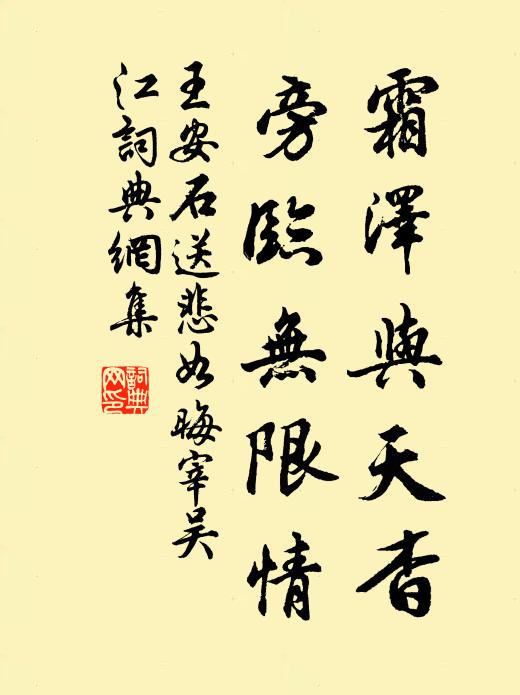 霜澤與天杳
旁臨無限情
王安石送悲如晦宰吴
江詞典網集
詞典网印